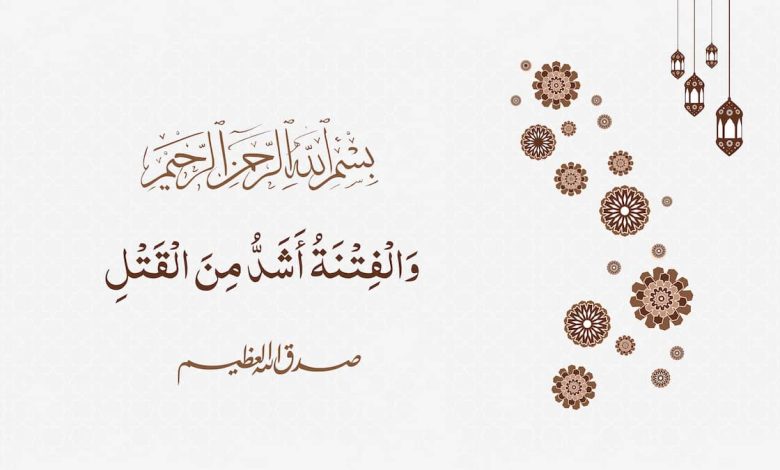 بِسْمِ ٱللَّهِ ٱلرَّحْمَٰنِ ٱلرَّحِيمِ
وَالْفِتْنَةُ أَشَدُّ مِنَ الْقَتْلِ
صدق الله العظيم